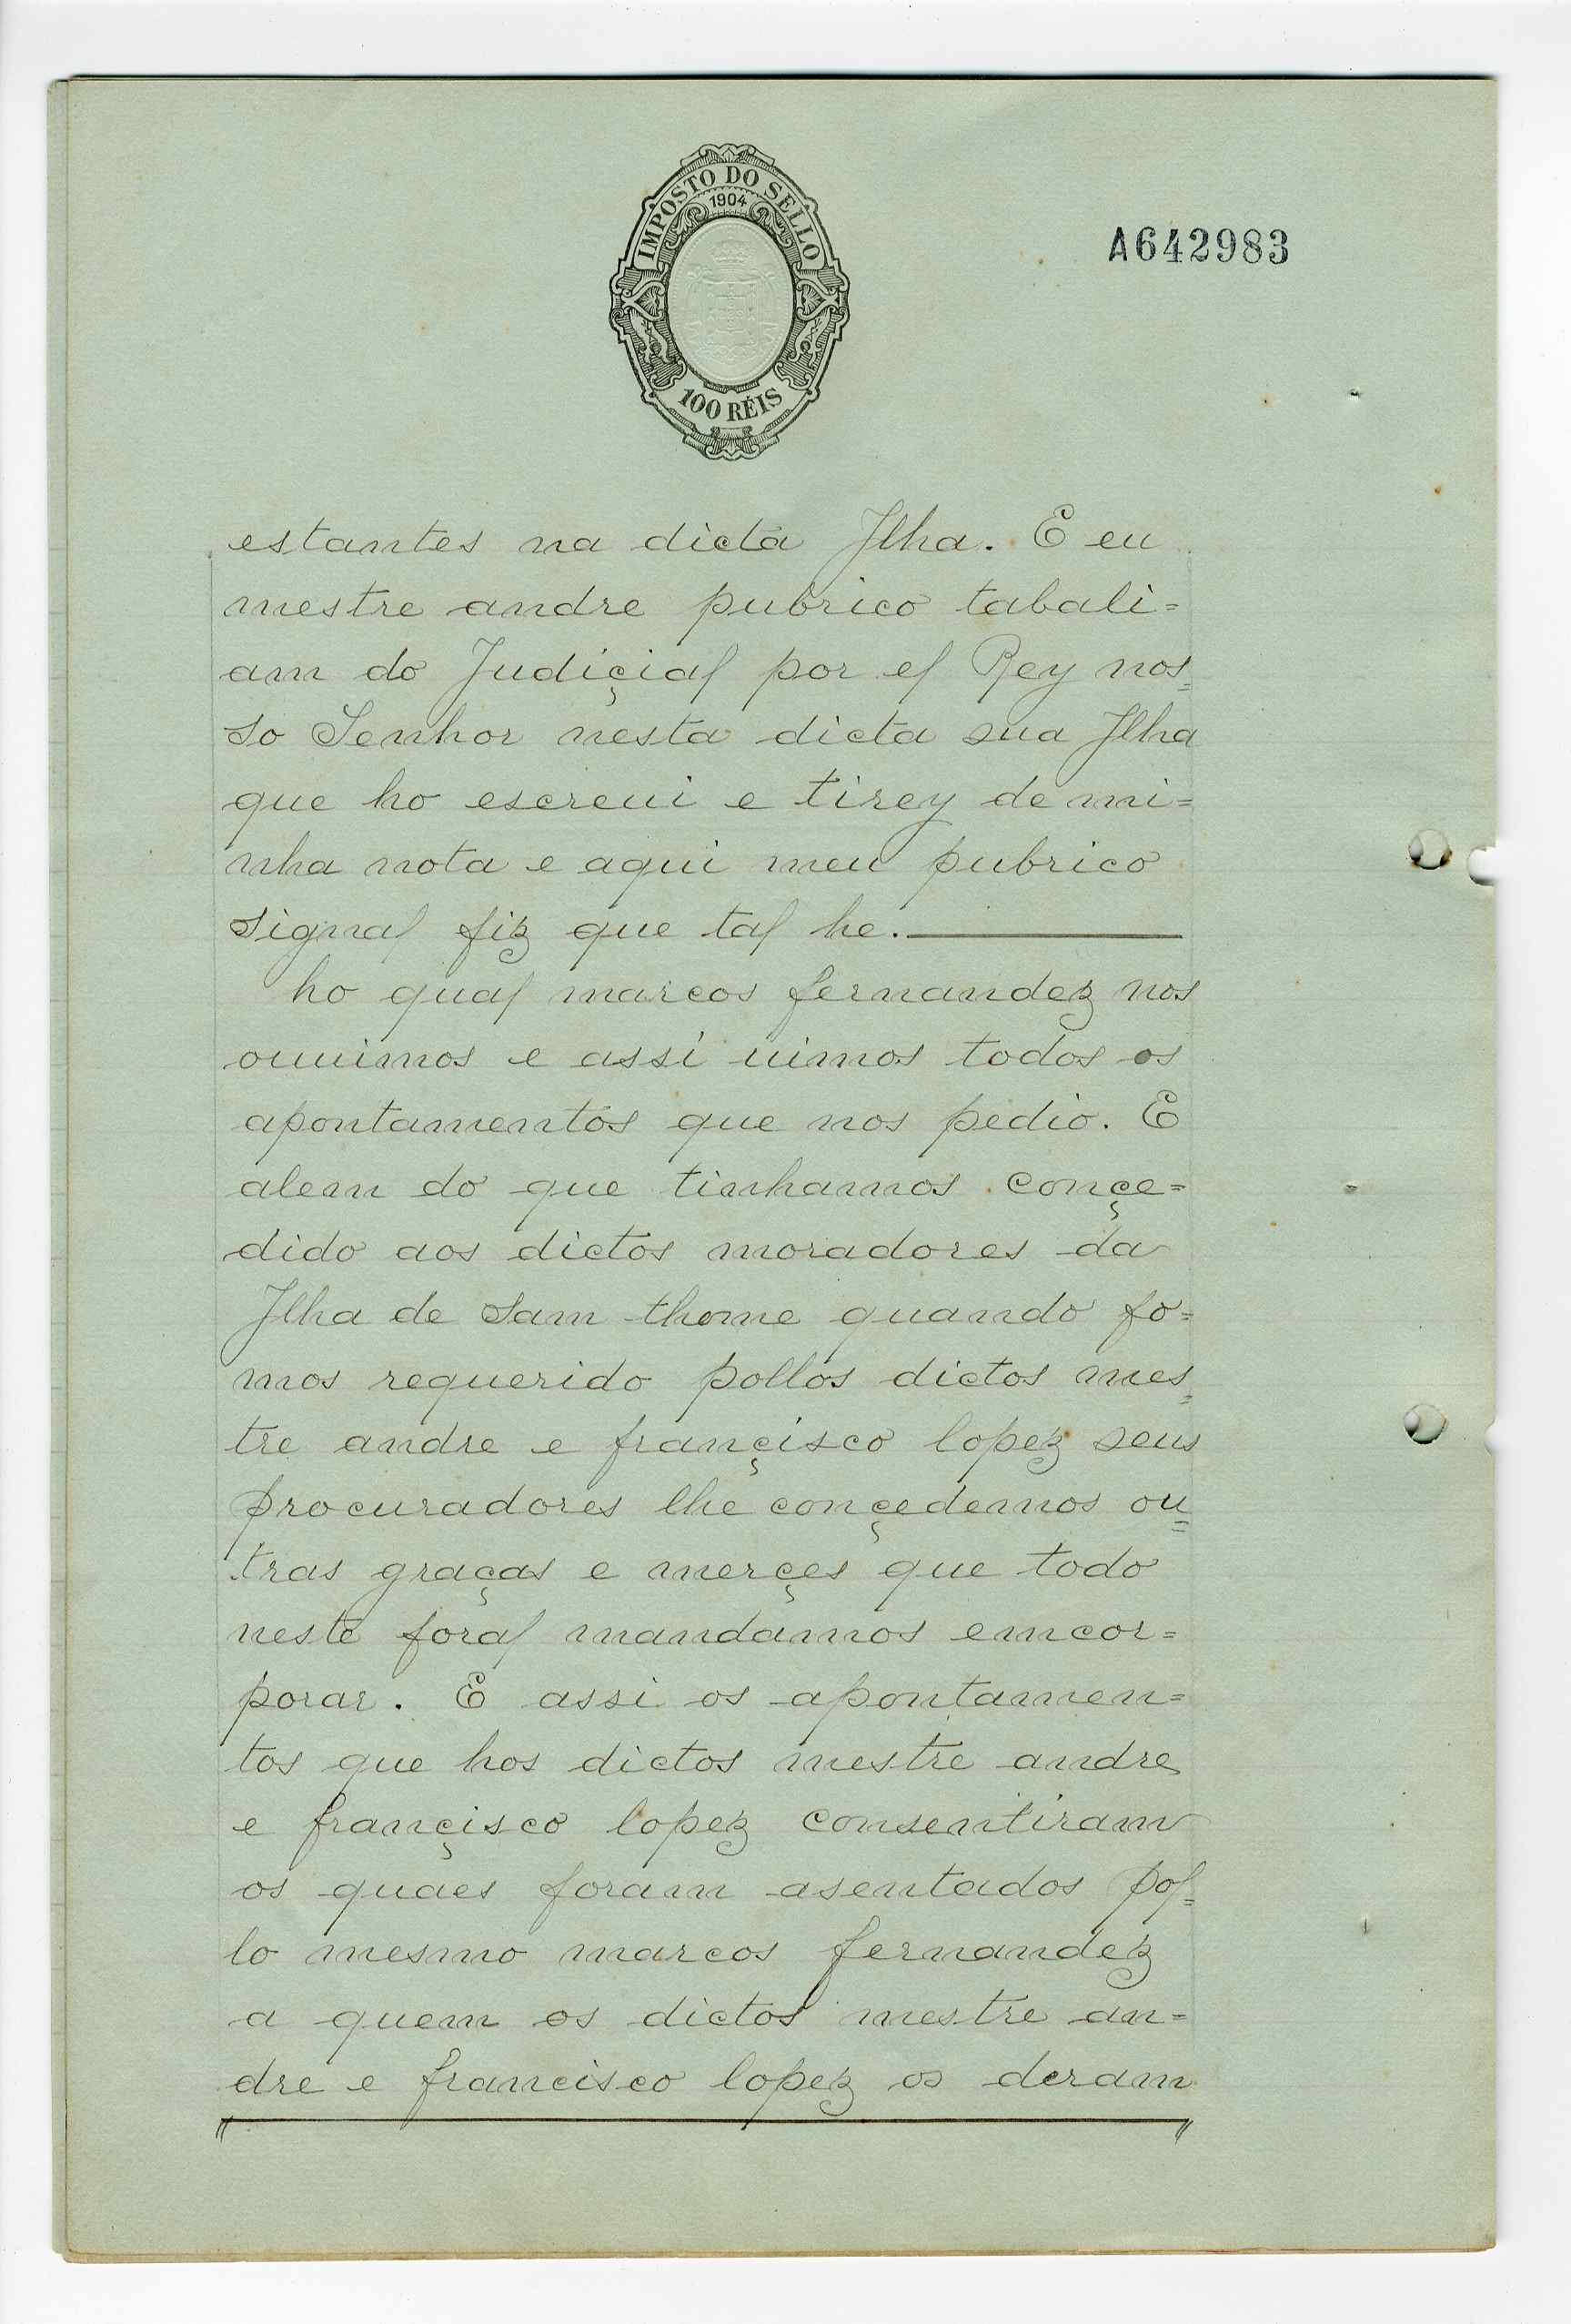 IMPOSTO DO SELLO
1904
100 RÉIS
A642983
estantes na dicta Jlha. E eu
mestre andre pubrico tabali=
am do Judiçial por el Rey nos=
so Senhor nesta dicta sua Jlha
que ho escreui e tirey de mi=
nha nota e aqui meu pubrico
signal fiz que tal he.
ho qual marcos fernandez nos
ouuimos e assi uimos todos os
apontamentos que nos pedio. E
alem do que tinhamos conçe=
dido aos dictos moradores da
Jlha de Sam thome quando fo=
mos requerido pollos dictos mes=
tre andre e françisco lopez seus
procuradores lhe conçedemos ou=
tras graças e merçes que todo
neste foral mandamos emcor=
porar. E assi os apontamen=
tos que hos dictos mestre andre
e françisco lopez consentiram
os quaes foram asentados pol=
lo mesmo marcos fernandez
a quem os dictos mestre an=
dre e francisco lopez os deram